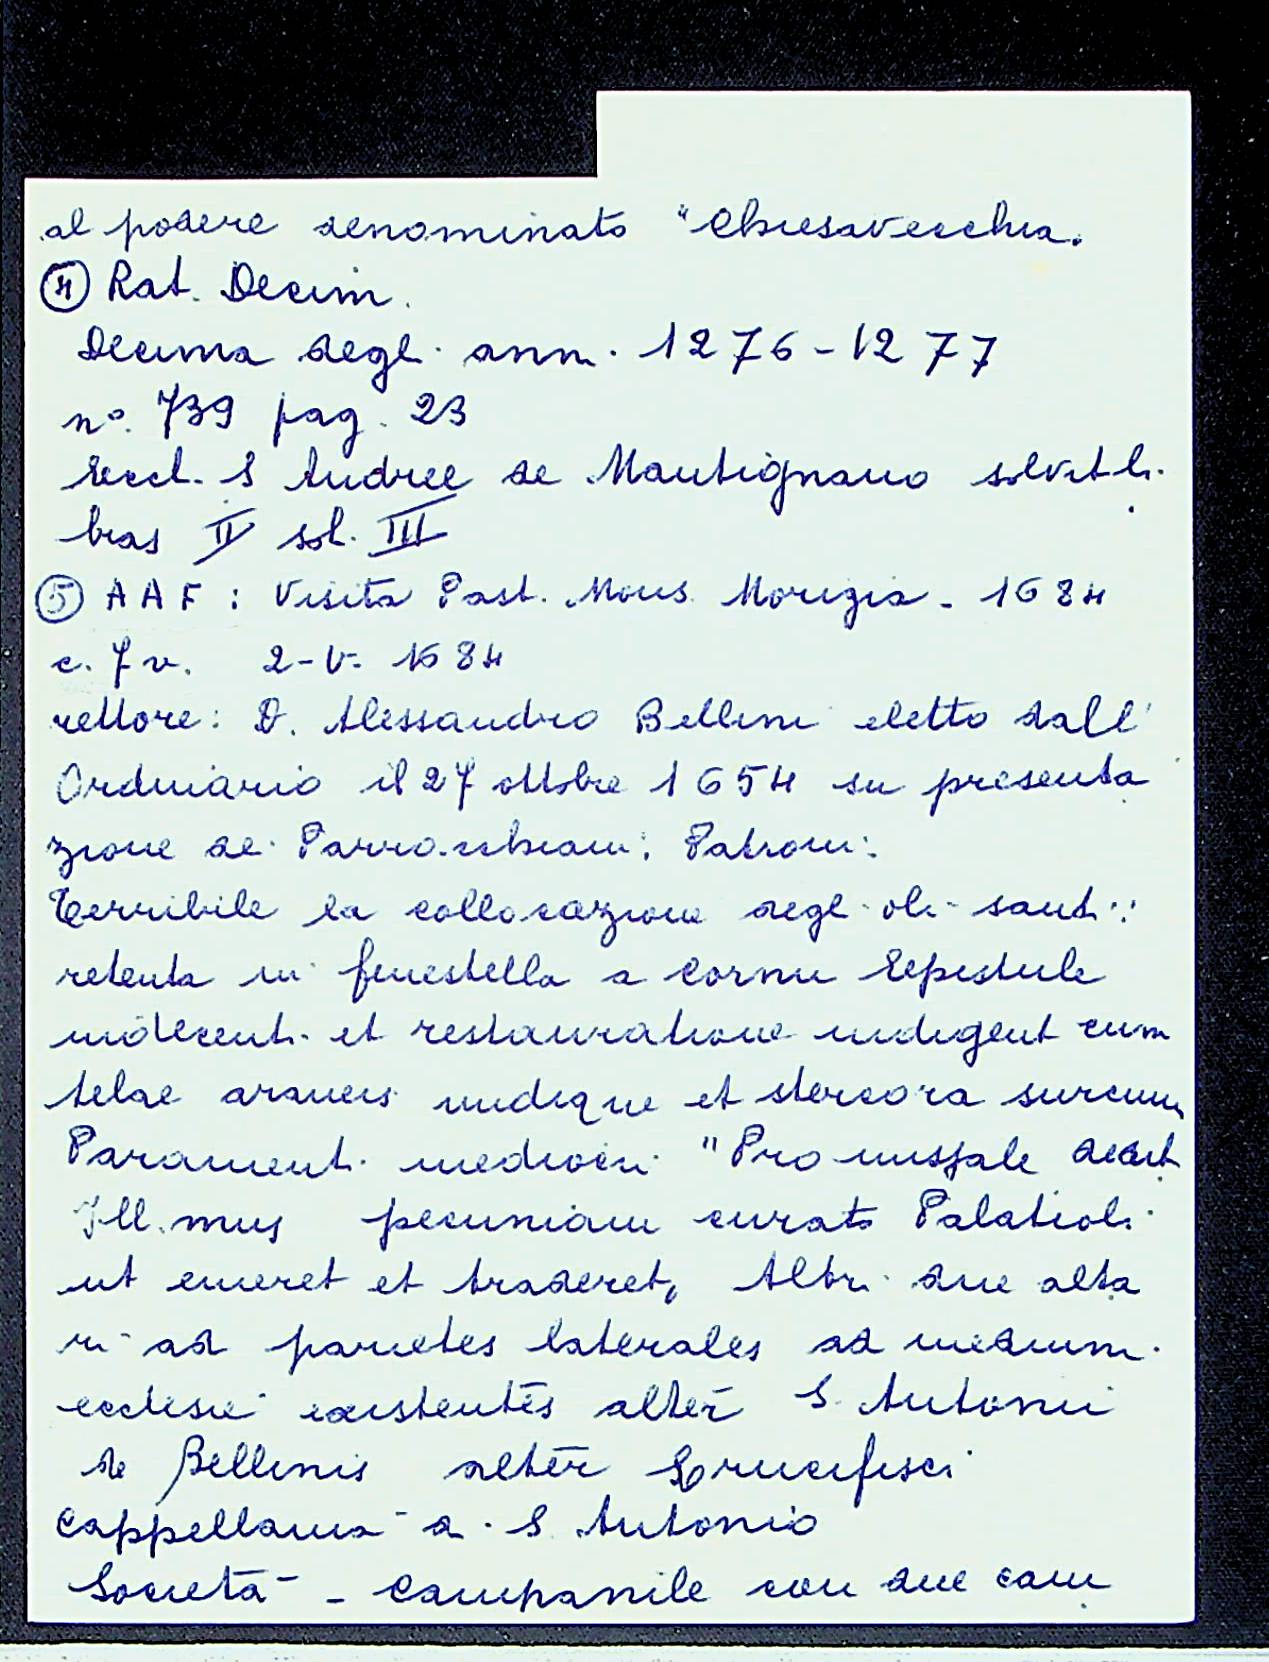 al podere denominato "Chiesavecchia.
④ Rat. Decim.
Decima degl. ann. 1276-1277
n°. 739 pag. 23
Eccl. S Andree de Mantignano solvit li.
bras II sol. III
⑤ A A F : Visita Past. Mons. Morigia - 1684
c. 7 v. 2-V- 1684
rettore: D. Alessandro Bellini eletto dall'
Ordinario il 27 ottobre 1654 su presenta
zione dei Parrocchiani: Patroni:
Terribile la collocazione degli oli santi:
retenta in fenestella a cornu Epistule
indecenti et restauratione indigent cum
telae araneis undique et stercora
Paramenti mediocri "Pro missale
Ill.mus pecuniam curato Palatioli
ut emeret et traderet, Altri due alta
ri ad parietes laterales ad medium
ecclesie existentes alter S. Antonii
de Bellinis alter Crucifisci
Cappellania a S Antonio
Società - Campanile con due cam